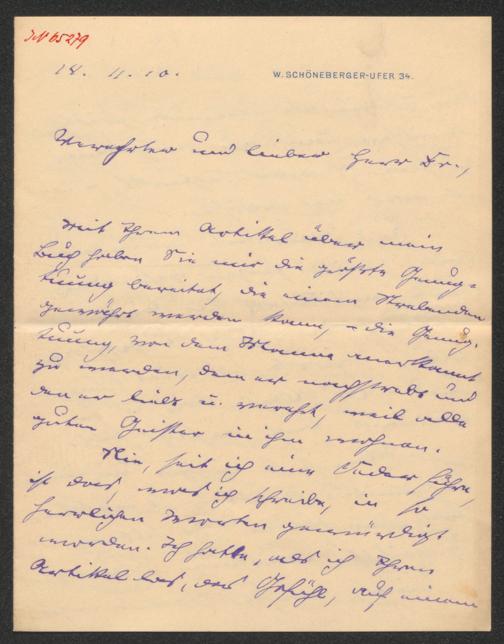 IN 65279
18. 11. 10.
W. SCHÖNEBERGER-UFER 34.
Verehrter und lieber Herr Dr.,
Mit Ihrem Artikel über mein
Buch haben Sie mir die größte Genug-
tuung bereitet, die einem Strebenden
gewährt werden kann, – die Genug-
tuung, von dem Manne anerkannt
zu werden, dem er nachstrebt und
den er liebt u. verehrt, weil alle
guten Geister in ihm wohnen.
Nie, seit ich eine Feder führe,
ist das, was ich schreibe, in so
herrlichen Worten gewürdigt
worden. Ich hatte, als ich Ihren
Artikel las, das Gefühl, auf einem